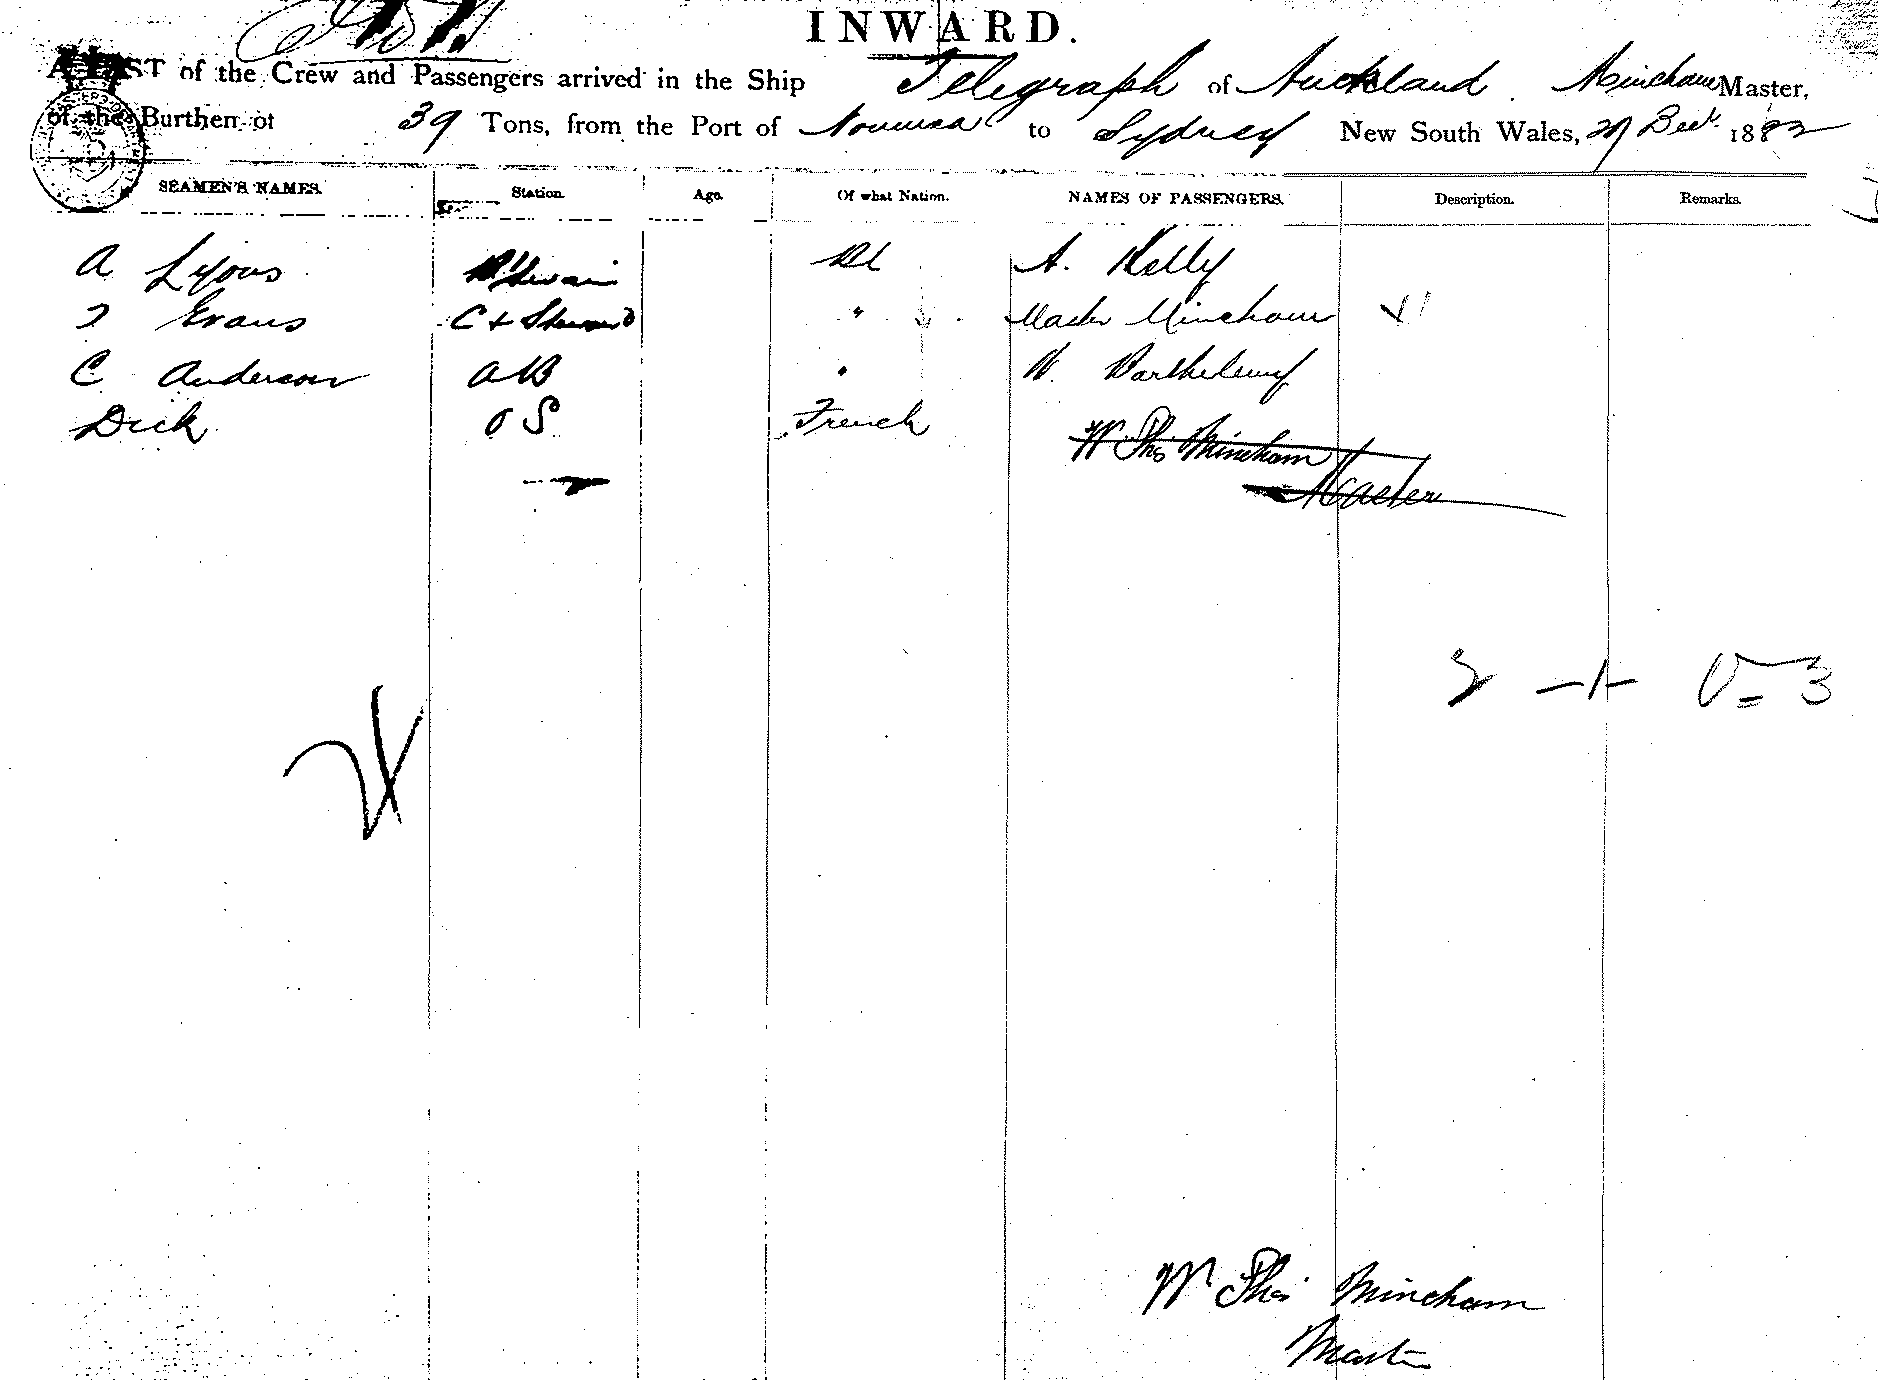 INWARD.
A LIST of the Crew and Passengers arrived in the Ship Telegraph of Auckland Mincham Master,
of the Burthen of 39 Tons, from the Port of Noumea to Sydney New South Wales, 27 Decr. 1882
SEAMEN'S NAMES. Station. Age. Of what Nation. NAMES OF PASSENGERS. Description. Remarks.
A Lyons B'Swain A. Kelly
Evans C & Steward " Master Mincham
C Anderson AB " Barthelemy
Dick O S French
Wm Thos Mincham
Master
3
Wm Thos Mincham
Master